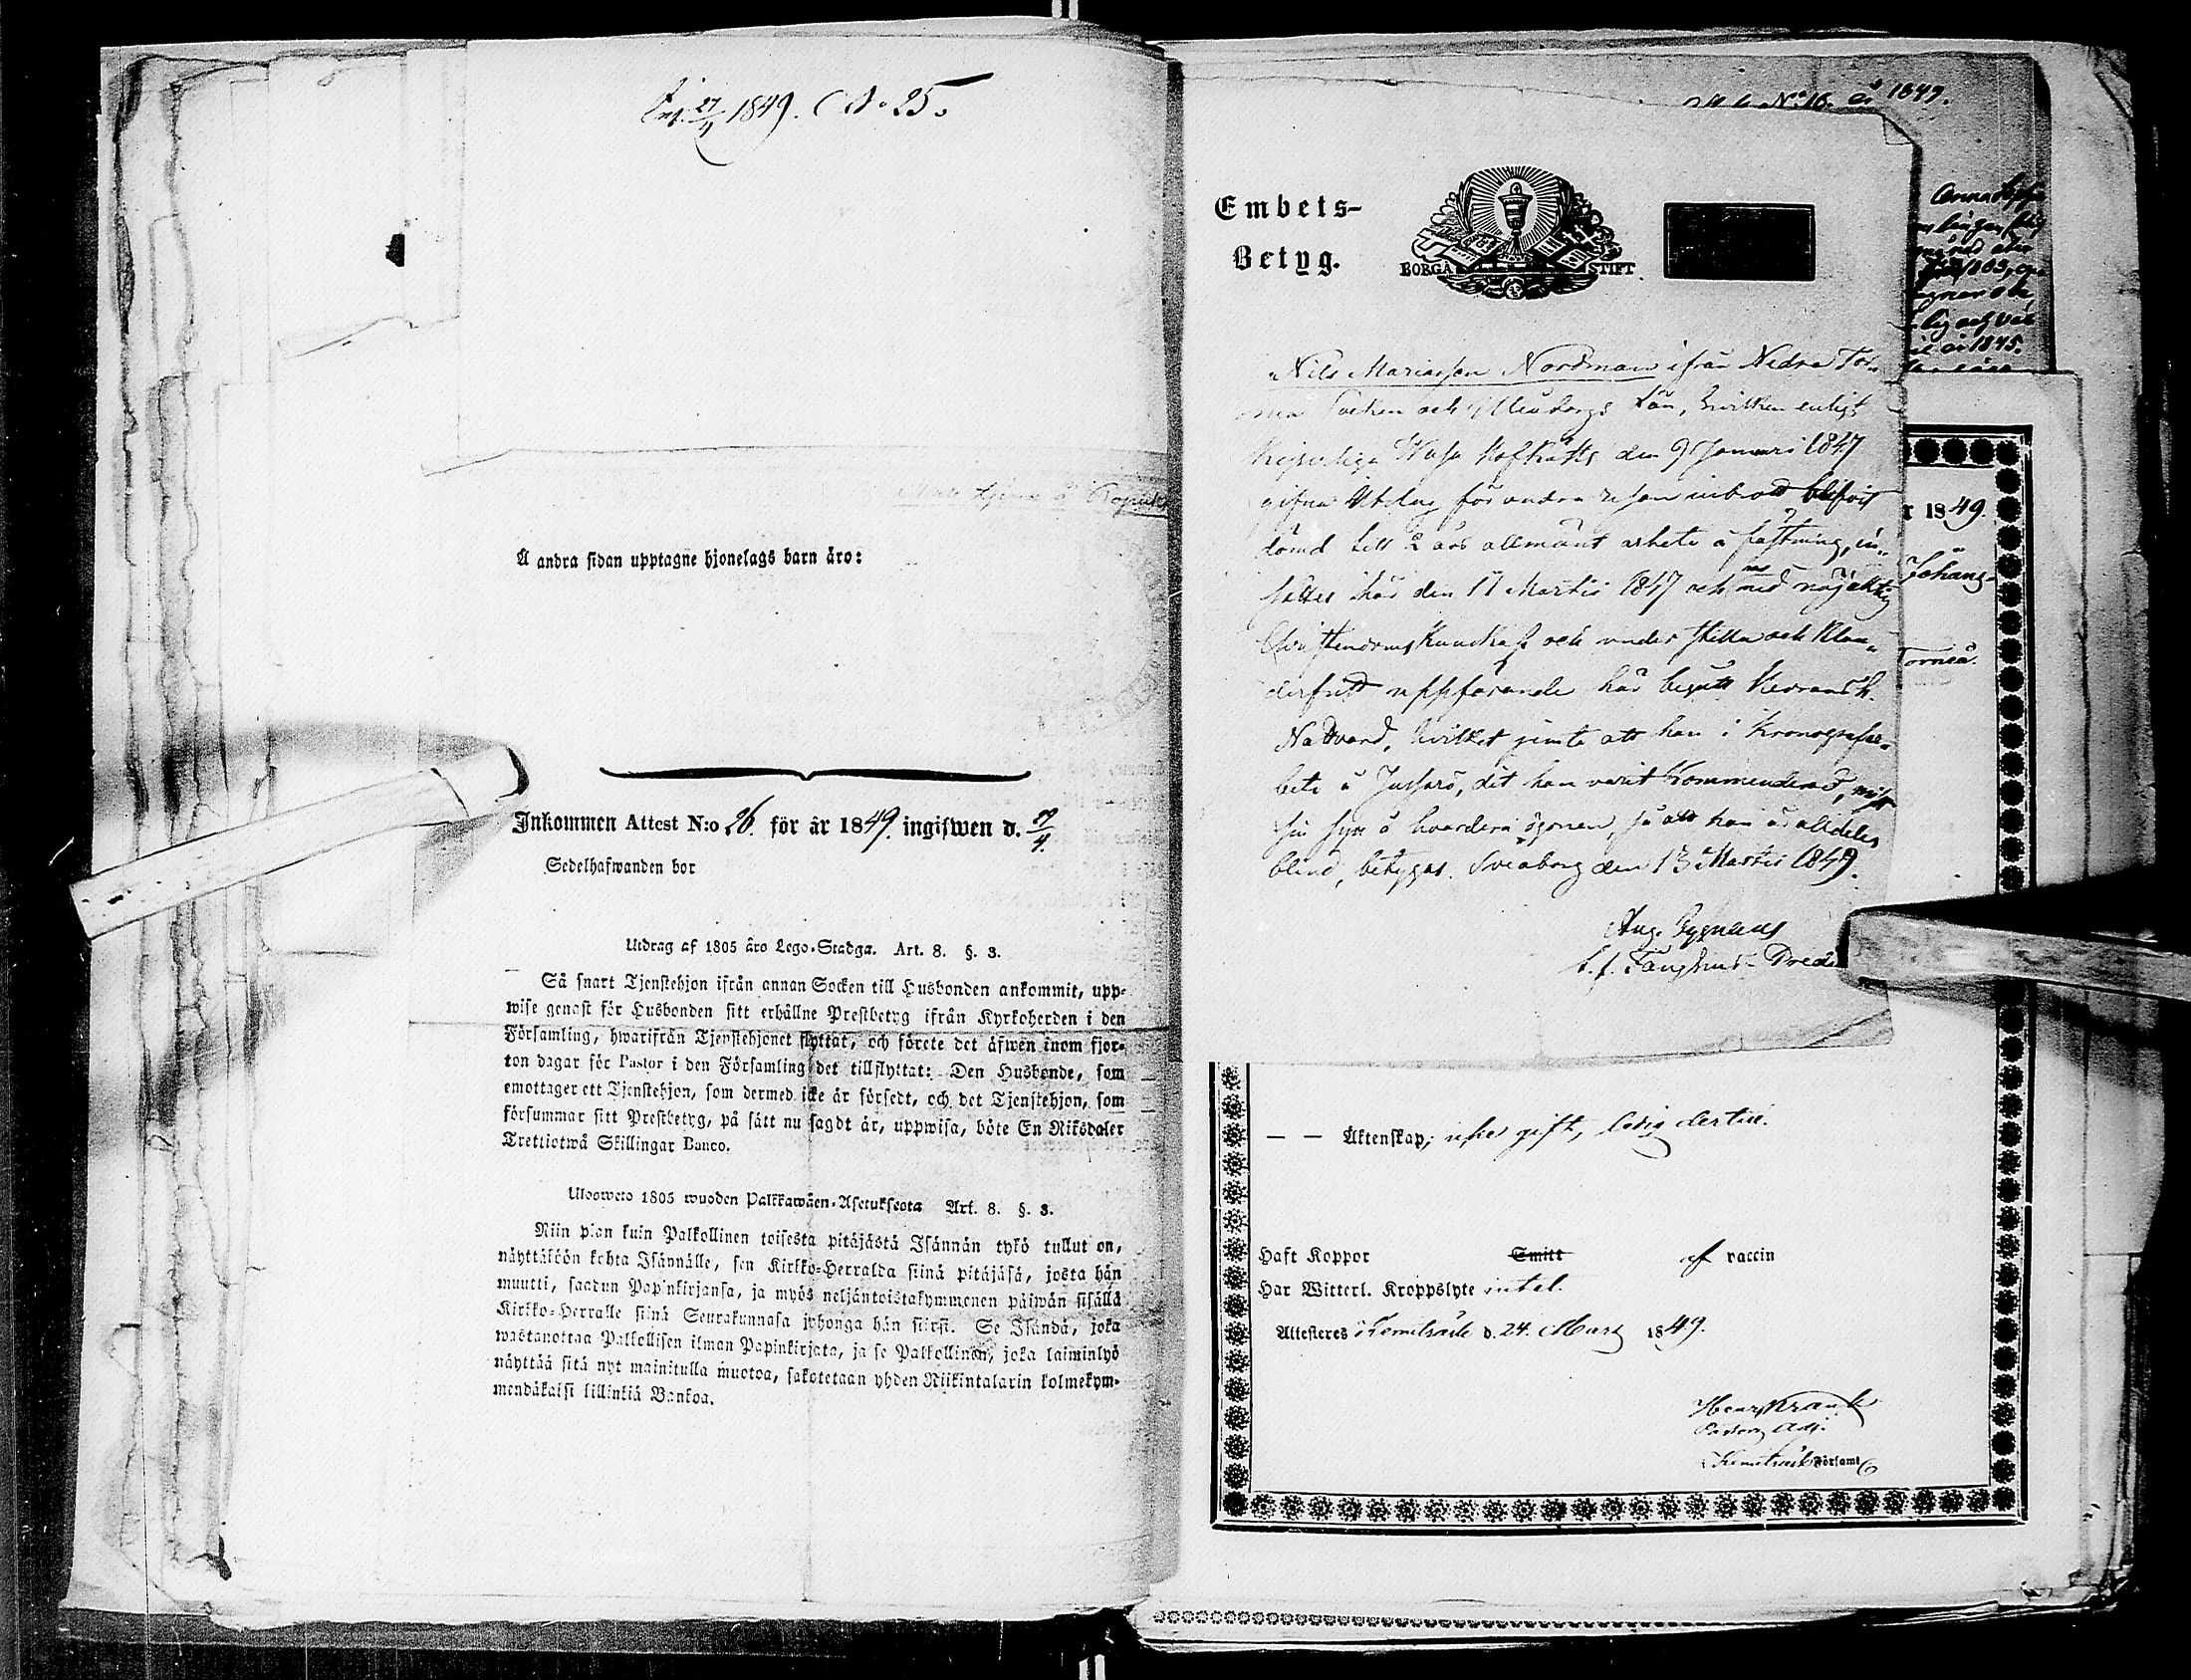 Inf. 27/4 1849. (N:o 25.
A andra sidan upptagne hjonelags barn äro:
Inkommen Attest N:o 26. för år 1849. ingifwen d. 27/4.
Sedelhafwanden bor
Utdrag af 1805 års Lego-Stadga. Art. 8. §. 3.
Så snart Tjenstehjon ifrån annan Socken till Husbonden ankommit, upp-
wise genast för Husbonden sitt erhållne Prestbetyg ifrån Kyrkoherden i den
Församling, hwarifrån Tjenstehjonet flyttat, och förete det äfwen inom fjor-
ton dagar för Pastor i den Församling det tillflyttat: Den Husbonde, som
emottager ett Tjenstehjon, som dermed icke är försedt, och det Tjenstehjon, som
försummar sitt Prestbetyg, på sätt nu sagdt är, uppwisa, böte En Riksdaler
Trettiotwå Skillingar Banco.
Ulosweto 1805 wuoden Palkkawäen-Asetuksesta Art. 8. §. 3.
Niin pian kuin Palkollinen toisesta pitäjästä Isännän tykö tullut on,
näyttäköön kohta Isännälle, sen Kirkko-Herralda siinä pitäjäsä, josta hän
muutti, saadun Papinkirjansa, ja myös neljäntoistakymmenen päiwän sisällä
Kirkko-Herralle siinä Seurakunnasa johonga hän siirsi. Se Isändä, joka
wastanottaa Palkollisen ilman Papinkirjata, ja se Palkollinen, joka laiminlyö
näyttää sitä nyt mainitulla muotoa, sakotetaan yhden Riikintalarin kolmekym-
mendäkaisi killinkiä Bankoa.
N:o 16. år 1849.
Embets-
Betyg.
BORGÅ STIFT
Nils Mariasson Nordman ifrån Nedra Tor-
neå Socken och Uleåborgs Län, hvilken enligt
Kejserliga Wasa Hofrätts den 9 Januari 1847
gifna Utslag för andra resan inbrott blifvit
dömd till 2 års allmänt arbete å fästning, in-
sattes här den 17 Martii 1847 och med nöjaktig
Christendoms Kunskap och under stilla och klan-
derfritt uppförande här begått Herrans h.
Nattvard, hvilket jemte att han i Kronografar-
bete å Jussarö, dit han varit Kommenderad, mist
sin syn å hvardera ögonen, så att han är alldeles
blind, betygas. Sveaborg den 13 Martii 1849.
Aug. Cygnæus
t. f. Fånghus-Predi
1849.
Johans-
Torneå.
— — Äktenskap; icke gift, ledig dertill.
Haft Koppor Smitt af vaccin
Har Witterl. Kroppslyte intet.
Attesteres Kemiträsk d. 24. Mars 1849.
Henr. Krank
Pastors Adj.
Kemiträsk Församl